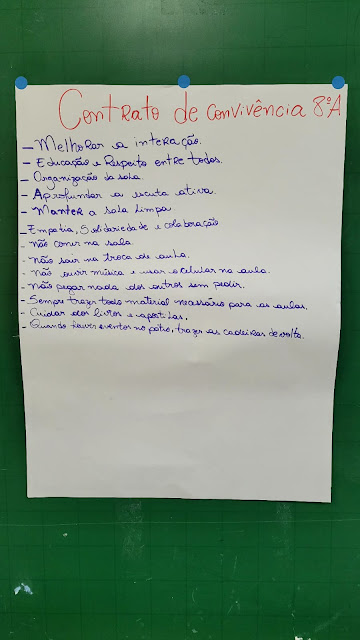 Contrato de convivência 8ºA
- Melhorar a interação.
- Educação e Respeito entre todos.
- Organização da sala.
- Aprofundar a escuta ativa.
- Manter a sala limpa.
- Empatia, Solidariedade e colaboração
- não comer na sala.
- não sair na troca de aula.
- não ouvir música e usar o celular na aula.
- não pegar nada dos outros sem pedir.
- Sempre trazer todo material necessário para as aulas.
- Cuidar dos livros e apostilas.
- Quando houver eventos no pátio, trazer as cadeiras de volta.